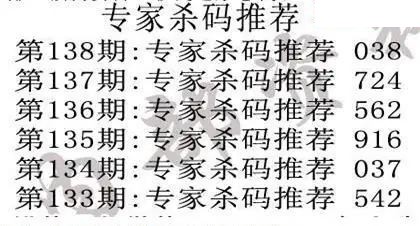 专家杀码推荐
第138期:专家杀码推荐 038
第137期:专家杀码推荐 724
第136期:专家杀码推荐 562
第135期:专家杀码推荐 916
第134期:专家杀码推荐 037
第133期:专家杀码推荐 542